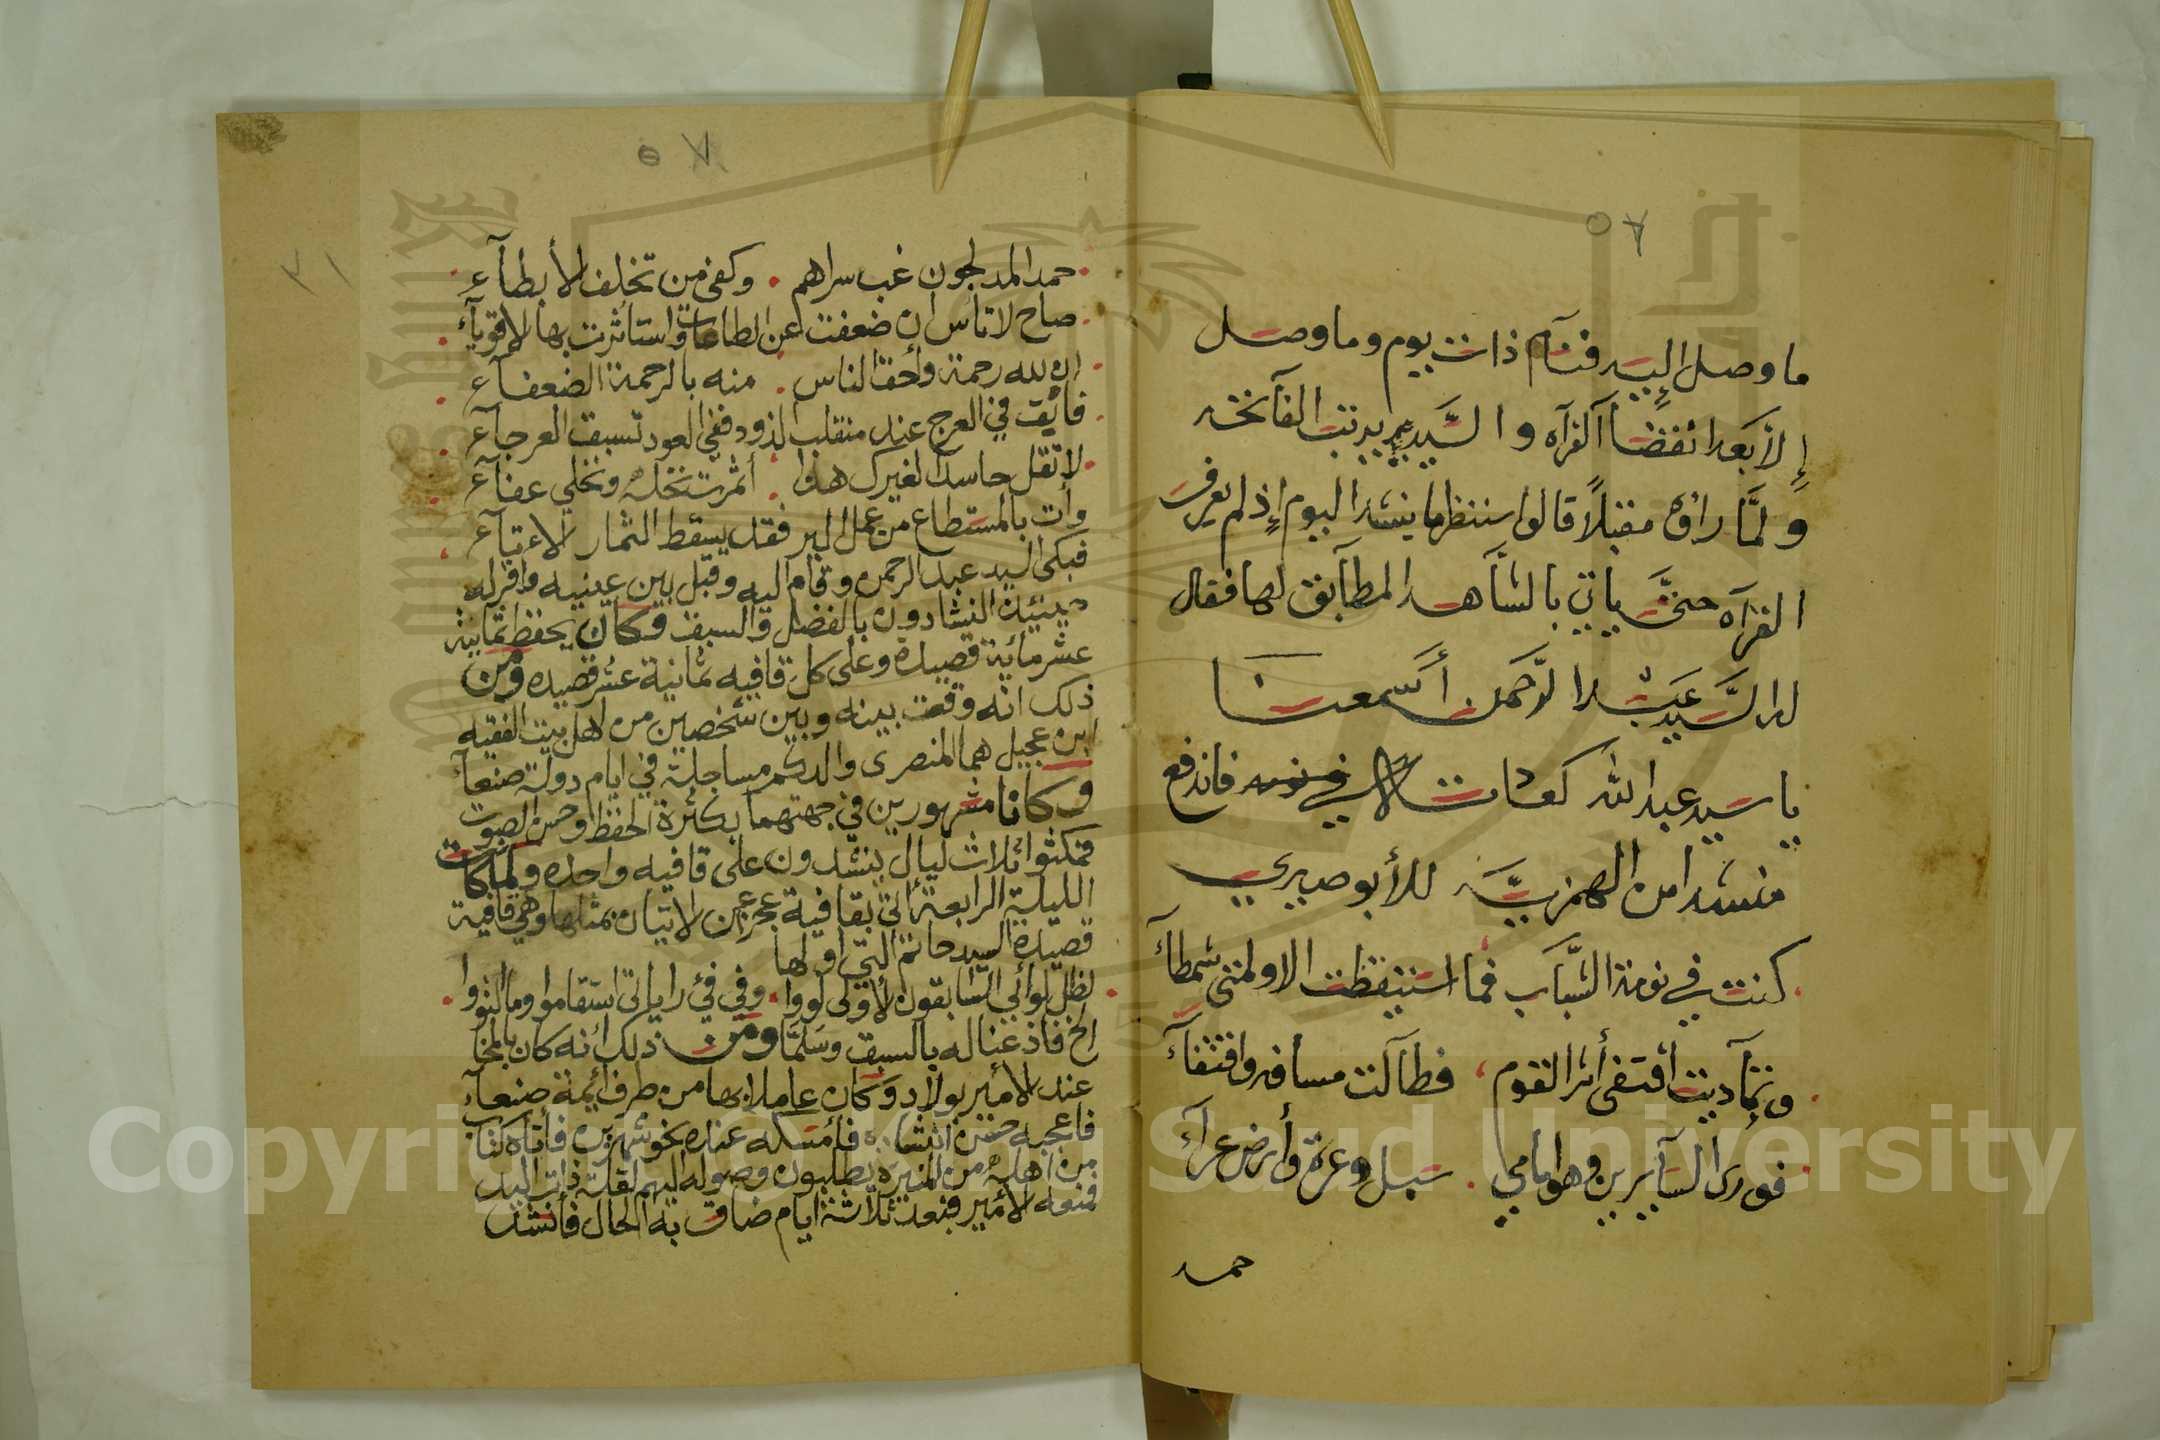 ٥٧
ما وصل إليه فتام ذات يوم وما وصل
إلا بعد انقضاآ القرآه والسيد يريد ترتيب الفآتحه
ولمَّا رأوه مقبلاً قالوا سننظر ما ينشد اليوم إذ لم يعرف
القرآه حتى ياتي بالشآهد المطآبق لها فقال
له السَّيد عبد الرَّحمن أسمعنا
يا سيد عبد الله كعادتك لا في فاندفع
منشدا من الهمزيَّه للأبوصيري
كنت في نومة الشَّباب فما استيقظت الا ولمتي شمطآء
وتمآديت أقتفي أثر القوم ، فطآلت مسافه واقتفآء
فورى السآيرين وهو امامي . سبل وعرة وأرض عرآء
حمد
٥٨
٣١
حمد المدلجون غب سراهم . وكفى من تخلف الأبطآء
صاح لا تأس ان ضعفت عن الطاعات واستأثرت بها الأقويآء
ان لله رحمة وأحق الناس . منه بالرحمة الضعفآء
فابق في العرج عند منقلب الذود ففي العود تسبق العرجآء
لا تقل حاسدا لغيرك هذا . أثمرت نخله ونخلي عفآء
وأت بالمستطاع من عمل البر فقد يسقط الثمار الاءتآء
فبكى السيد عبد الرحمن وقام اليه وقبل بين عينيه واقر له
حينئذ النشادون بالفضل والسبق وكان يحفظ ثمانية
عشر مائة قصيدة وعلى كل قافيه ثمانية عشر قصيده ومن
ذلك انه وقعت بينه وبين شخصين من اهل بيت الفقيه
ابن عجيل هما المنصرى والدكم مساجلة في ايام دولة صنعآ
وكانا مشهورين في جهتهما بكثرة الحفظ وحسن الصوت
فمكثوا ثلاث ليال ينشدون على قافيه واحده ولما كانت
الليلة الرابعة أتى بقافية عجز عن الاتيان بمثلها وهي قافية
قصيدة السيد حاتم التي اولها
لظل لوائي السابقون الأولى لووا . وفي فئ راياتي استقاموا وما التووا
الخ فاذعنا له بالسبق وسلمَّا ومن ذلك أنه كان بالمخا
عند الأمير بولاد وكان عاملا بها من طرف أئمة صنعآ
فاعجبه حسن انشاده فأمسكه عنده نحو شهرين فأتاه كتاب
من أهله من المنيره يطلبون وصوله اليهم لقلة ذات اليد
فمنعه الأمير فبعد ثلاثة ايام ضاق به الحال فأنشد
Copyright © King Saud University